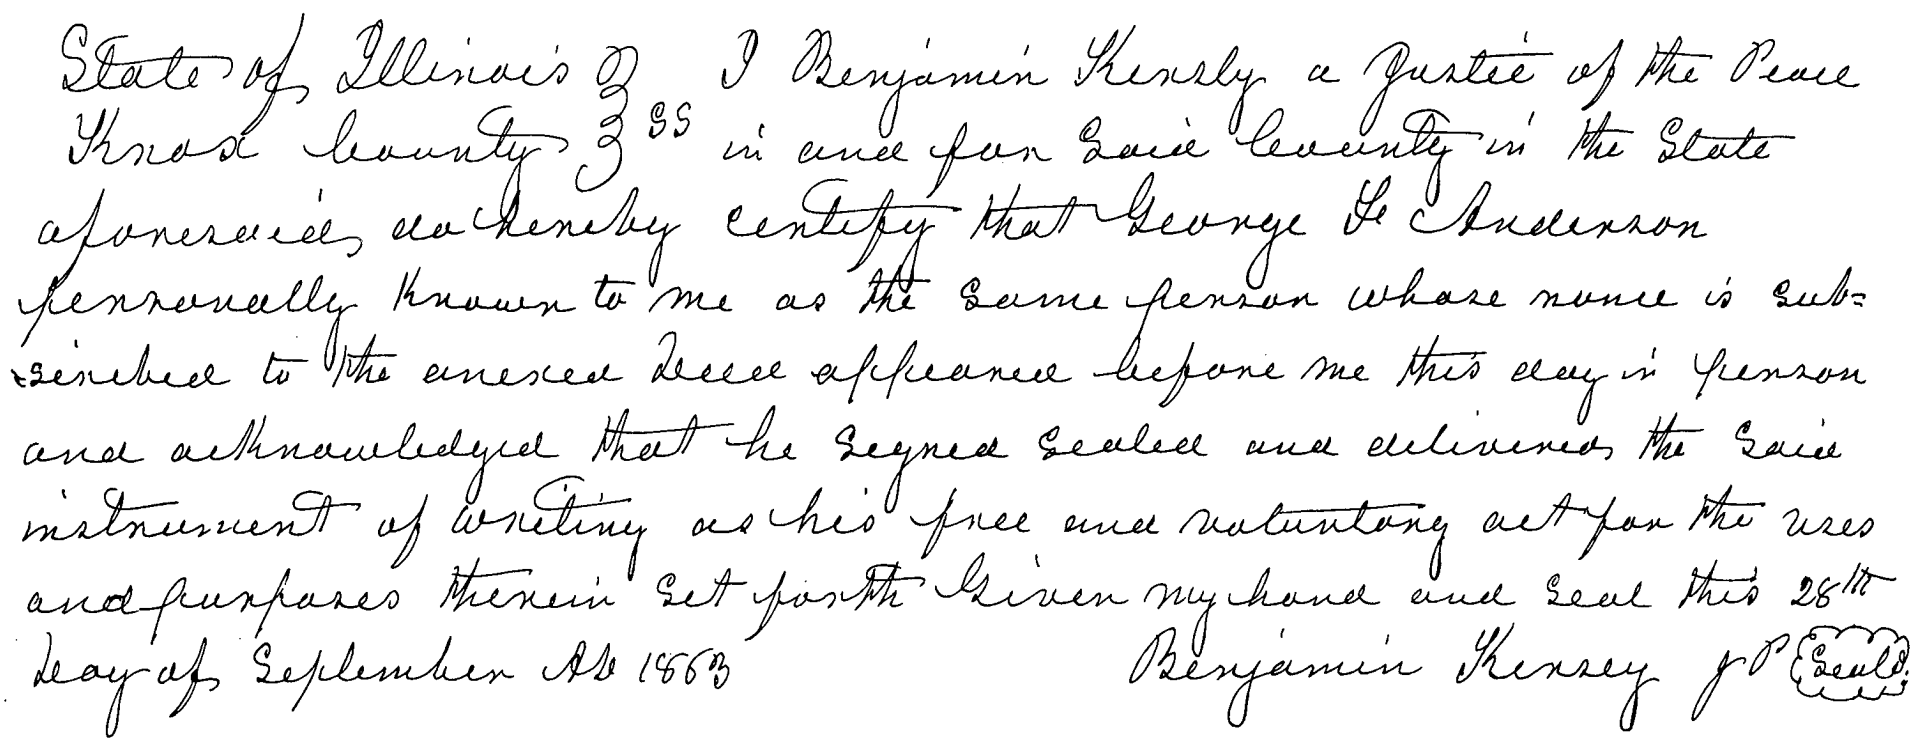 State of Illinois } I Benjamin Kersly a Justie of the Peace
Knox County } SS in and for Said County in the State
aforesaid, do hereby certify that George Anderson
personally Known to me as the same person whose name is sub=
scribed to the anexed Deed appeared before me this day in person
and acknowledged that he signed sealed and delivered the said
instrument of writing as his free and voluntary act for the uses
and purposes therein set forth Given my hand and seal this 28th
Day of September AD 1863 Benjamin Kersey J P Seal